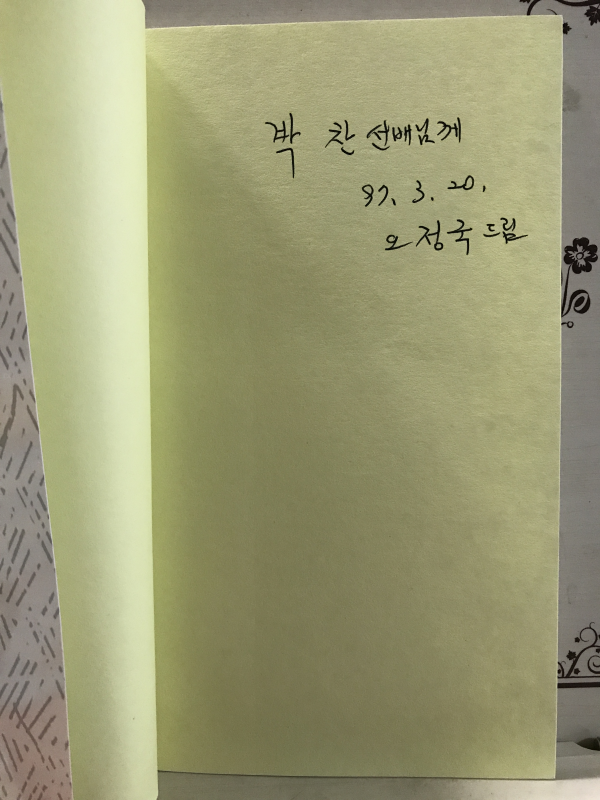 박 찬 선배님께
97. 3. 20.
오정국 드림